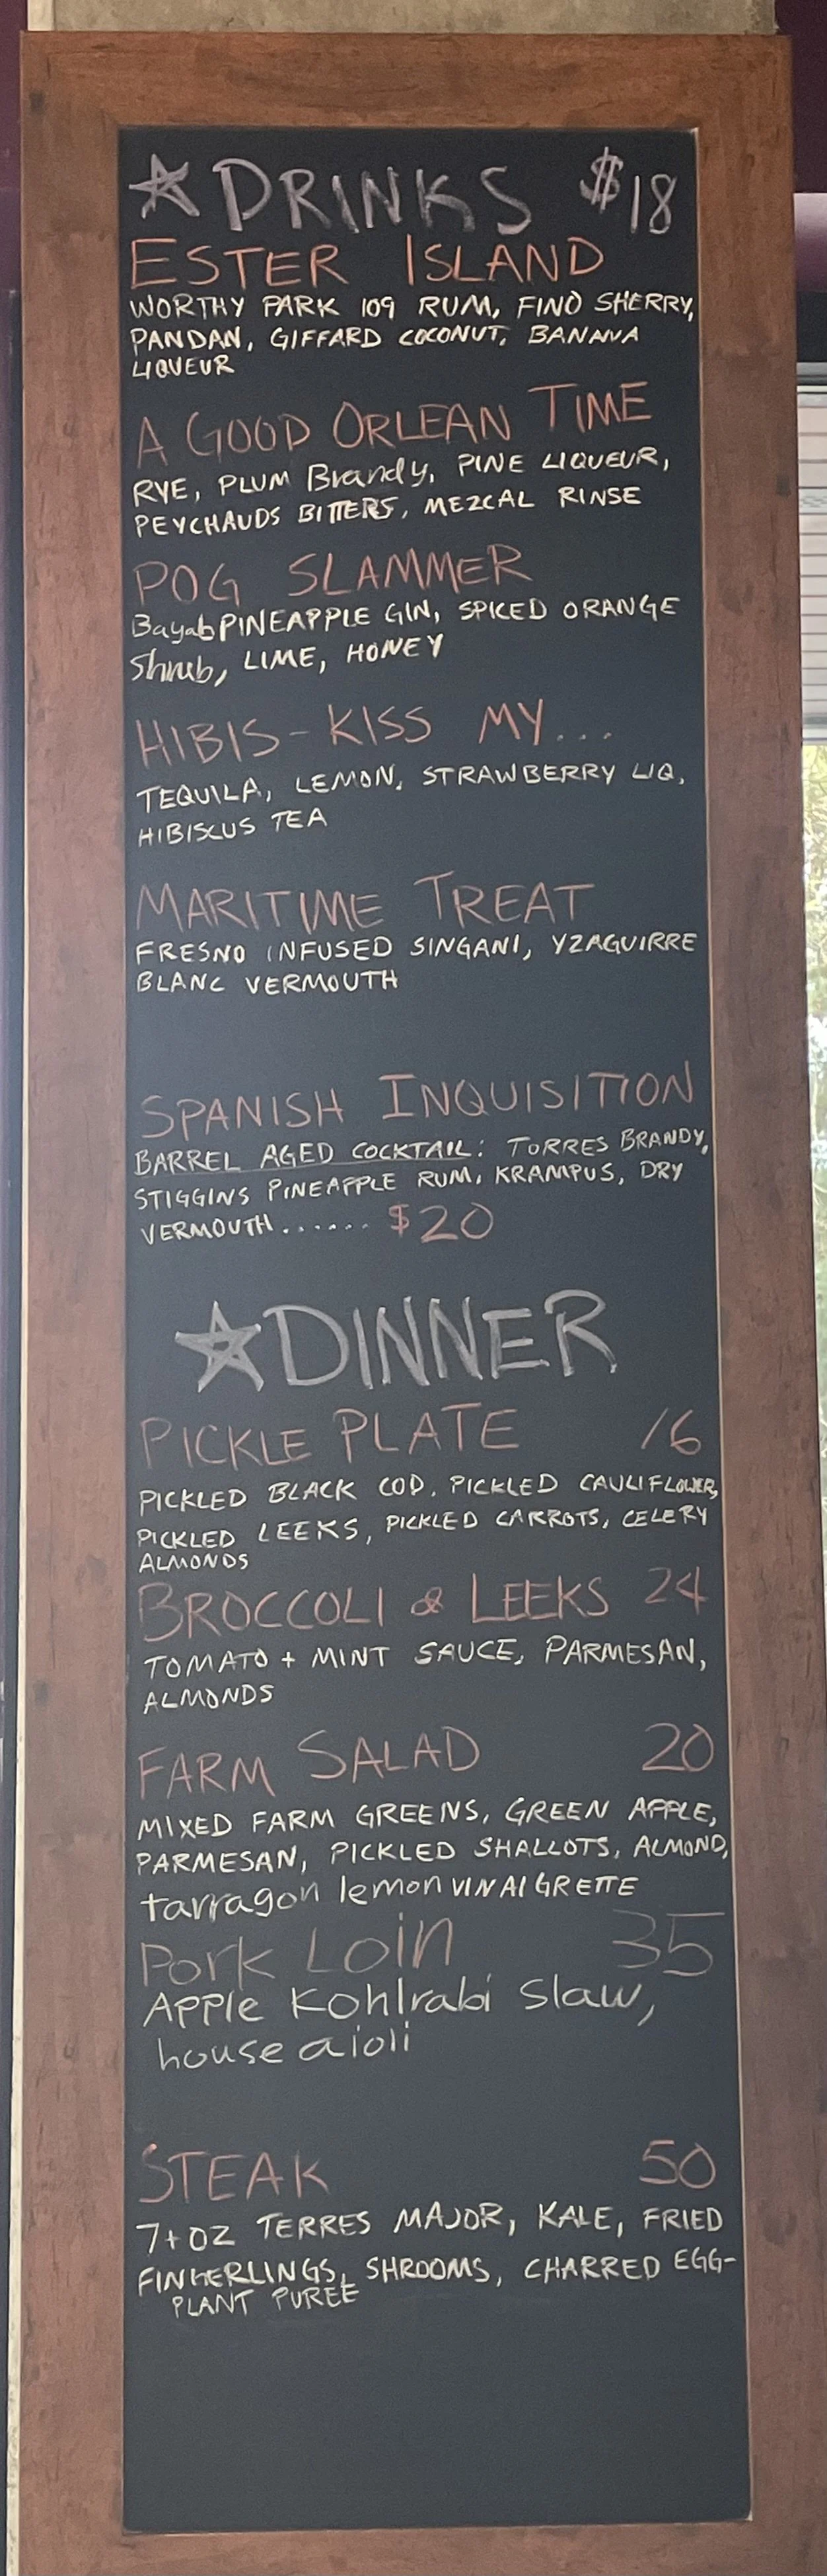 ☆ DRINKS $18
ESTER ISLAND
WORTHY PARK 109 RUM, FINO SHERRY,
PANDAN, GIFFARD COCONUT, BANANA
LIQUEUR
A GOOD ORLEAN TIME
RYE, PLUM Brandy, PINE LIQUEUR,
PEYCHAUDS BITTERS, MEZCAL RINSE
POG SLAMMER
Bayab PINEAPPLE GIN, SPICED ORANGE
Shrub, LIME, HONEY
HIBIS-KISS MY...
TEQUILA, LEMON, STRAWBERRY LIQ,
HIBISCUS TEA
MARITIME TREAT
FRESNO INFUSED SINGANI, YZAGUIRRE
BLANC VERMOUTH
SPANISH INQUISITION
BARREL AGED COCKTAIL: TORRES BRANDY,
STIGGINS PINEAPPLE RUM, KRAMPUS, DRY
VERMOUTH ...... $20
☆ DINNER
PICKLE PLATE 16
PICKLED BLACK COD, PICKLED CAULIFLOWER,
PICKLED LEEKS, PICKLED CARROTS, CELERY
ALMONDS
BROCCOLI & LEEKS 24
TOMATO + MINT SAUCE, PARMESAN,
ALMONDS
FARM SALAD 20
MIXED FARM GREENS, GREEN APPLE,
PARMESAN, PICKLED SHALLOTS, ALMOND,
tarragon lemon VINAIGRETTE
Pork Loin 35
Apple Kohlrabi Slaw,
house aioli
STEAK 50
7+OZ TERRES MAJOR, KALE, FRIED
FINGERLINGS, SHROOMS, CHARRED EGG-
PLANT PUREE